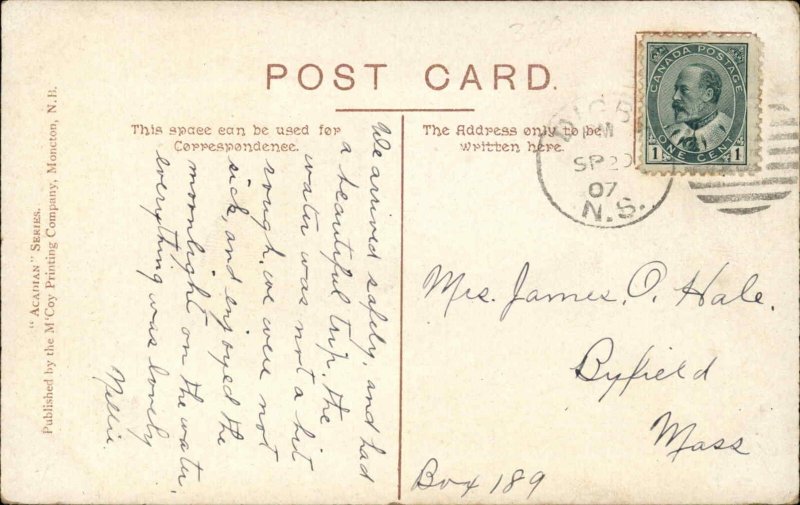 POST CARD.
This space can be used for
Correspondence.
The Address only to be
written here.
"ACADIAN" SERIES.
Published by the McCoy Printing Company, Moncton, N.B.
We arrived safely, and had
a beautiful trip. the
water was not a bit
rough, we were not
sick, and enjoyed the
moonlight on the water,
everything was lovely
Nellie.
CANADA POSTAGE
1 ONE CENT 1
DIGBY
PM
SP 20
07
N.S.
Mrs. James, O. Hale.
Byfield
Mass
Box 189